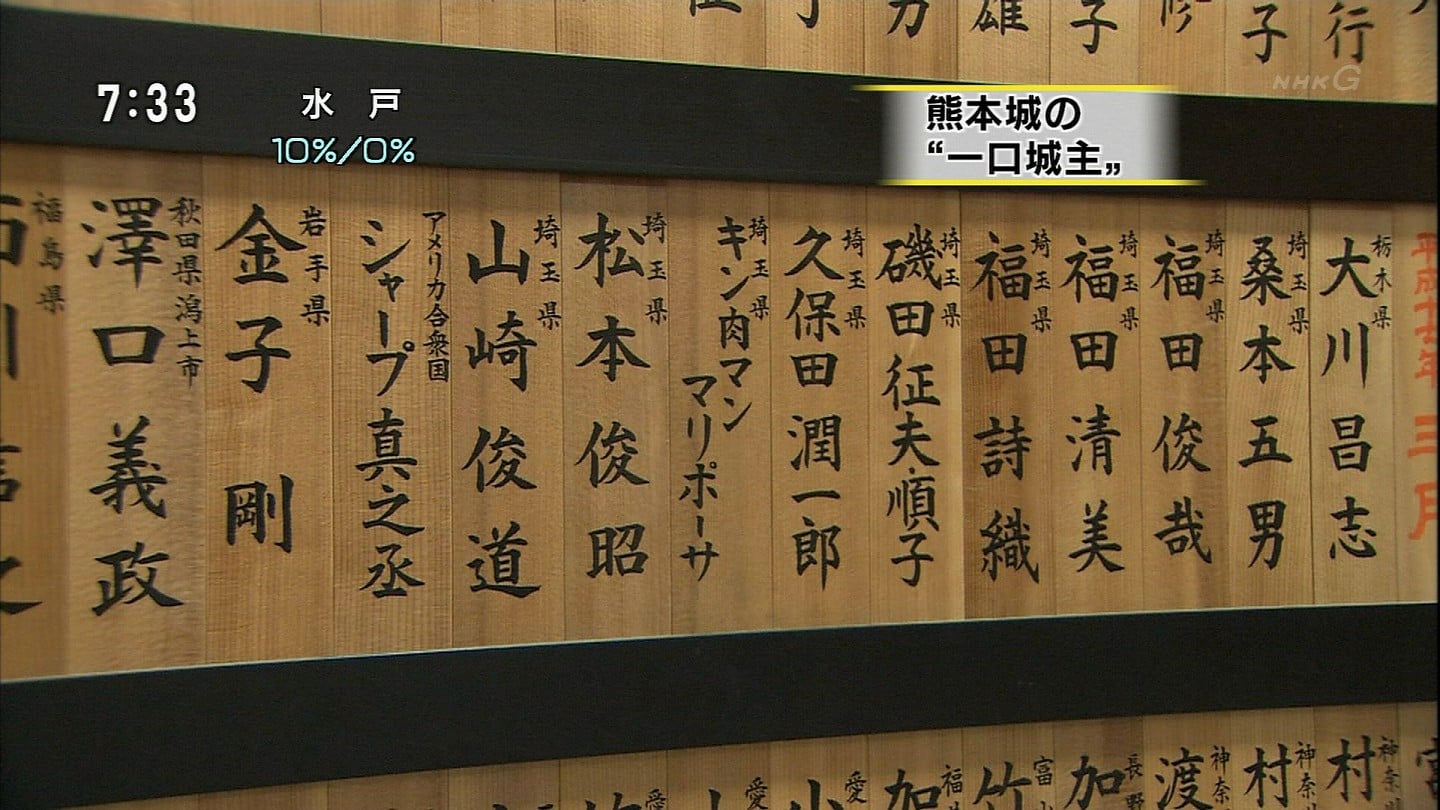 7:33
水戸
10%/0%
NHKG
熊本城の
“一口城主„
行
子
修
子
雄
力
平成十七年 三月
栃木県
大川昌志
埼玉県
桑本五男
埼玉県
福田俊哉
埼玉県
福田清美
埼玉県
福田詩織
埼玉県
磯田征夫・順子
埼玉県
久保田潤一郎
埼玉県
キン肉マン
マリポーサ
埼玉県
松本俊昭
埼玉県
山崎俊道
アメリカ合衆国
シャープ真之丞
岩手県
金子剛
秋田県潟上市
澤口義政
福島県
神奈
村
神奈
村
神奈
渡
長野
加
富山
竹
福井
加
愛
愛
愛